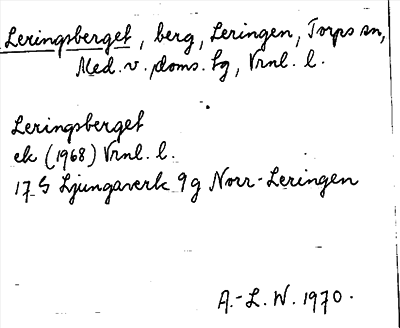 Leringsberget, berg, Leringen, Torps sn,
Med. v. doms. tg, Vrnl. l.
Leringsberget
ek (1968) Vrnl. l.
17 G Ljungaverk 9 g Norr-Leringen
A.-L. W. 1970.